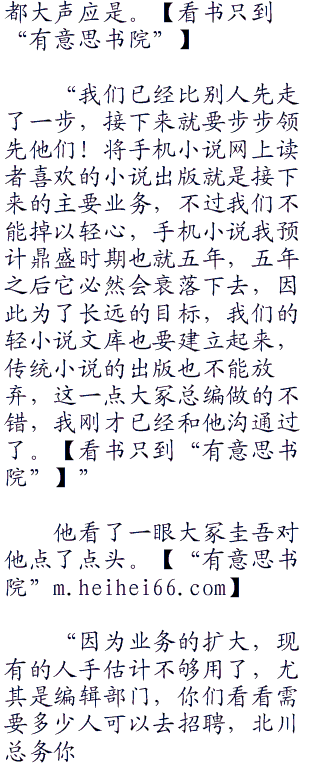 都大声应是。【看书只到
“有意思书院”】
“我们已经比别人先走
了一步，接下来就要步步领
先他们！将手机小说网上读
者喜欢的小说出版就是接下
来的主要业务，不过我们不
能掉以轻心，手机小说我预
计鼎盛时期也就五年，五年
之后它必然会衰落下去，因
此为了长远的目标，我们的
轻小说文库也要建立起来，
传统小说的出版也不能放
弃，这一点大冢总编做的不
错，我刚才已经和他沟通过
了。【看书只到“有意思书
院”】”
他看了一眼大冢圭吾对
他点了点头。【“有意思书
院”m.heihei66.com】
“因为业务的扩大，现
有的人手估计不够用了，尤
其是编辑部门，你们看看需
要多少人可以去招聘，北川
总务你